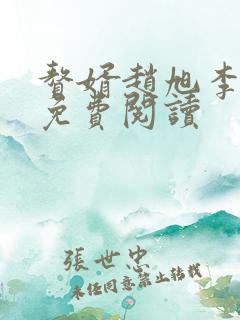 贅婿趙旭李
免費閱讀
張世忠
未經同意禁止转载